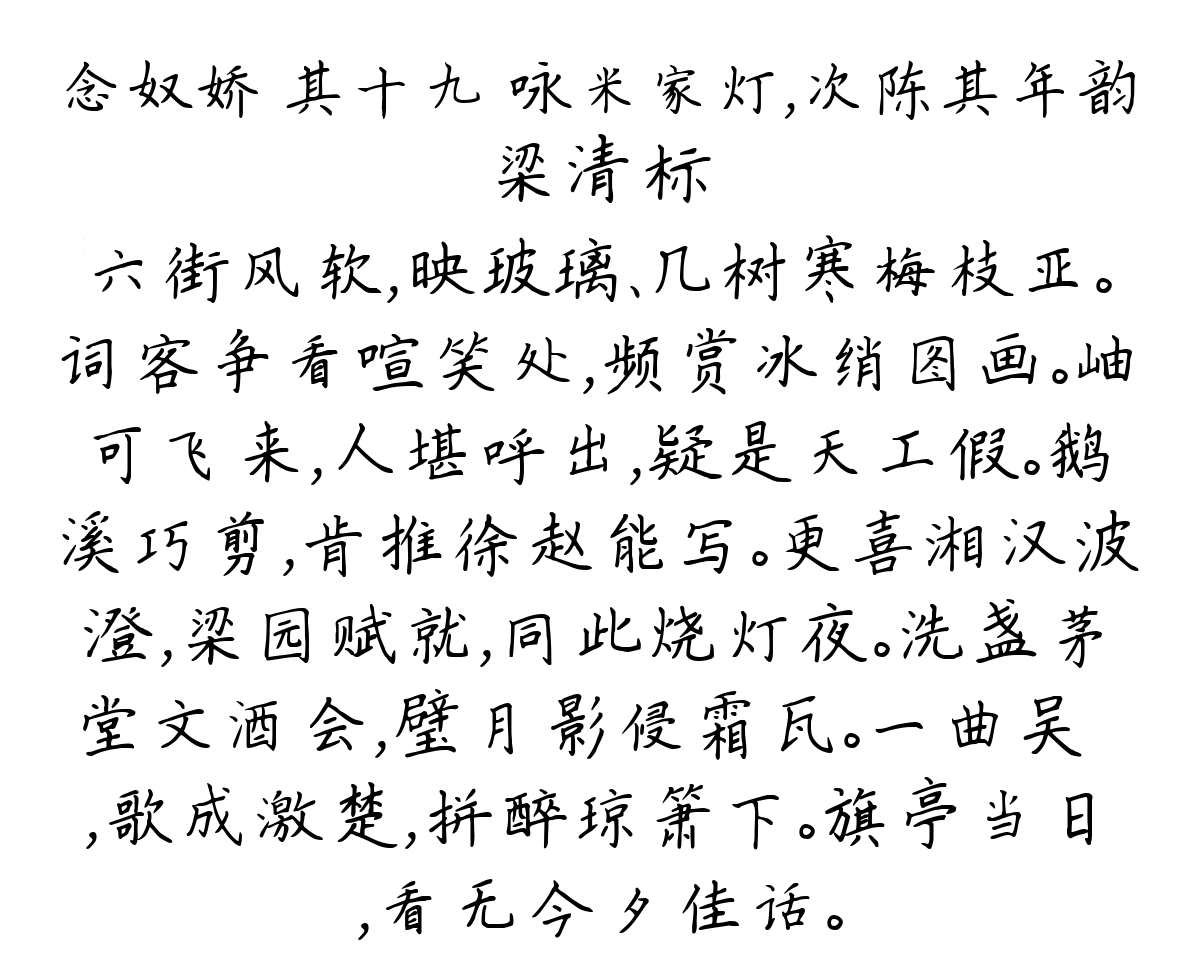 念奴娇 其十九 咏米家灯,次陈其年韵
梁清标
六街风软,映玻璃、几树寒梅枝亚。
词客争看喧笑处,频赏冰绡图画。岫
可飞来,人堪呼出,疑是天工假。鹅
溪巧剪,肯推徐赵能写。更喜湘汉波
澄,梁园赋就,同此烧灯夜。洗盏茅
堂文酒会,璧月影侵霜瓦。一曲吴
,歌成激楚,拼醉琼箫下。旗亭当日
,看无今夕佳话。